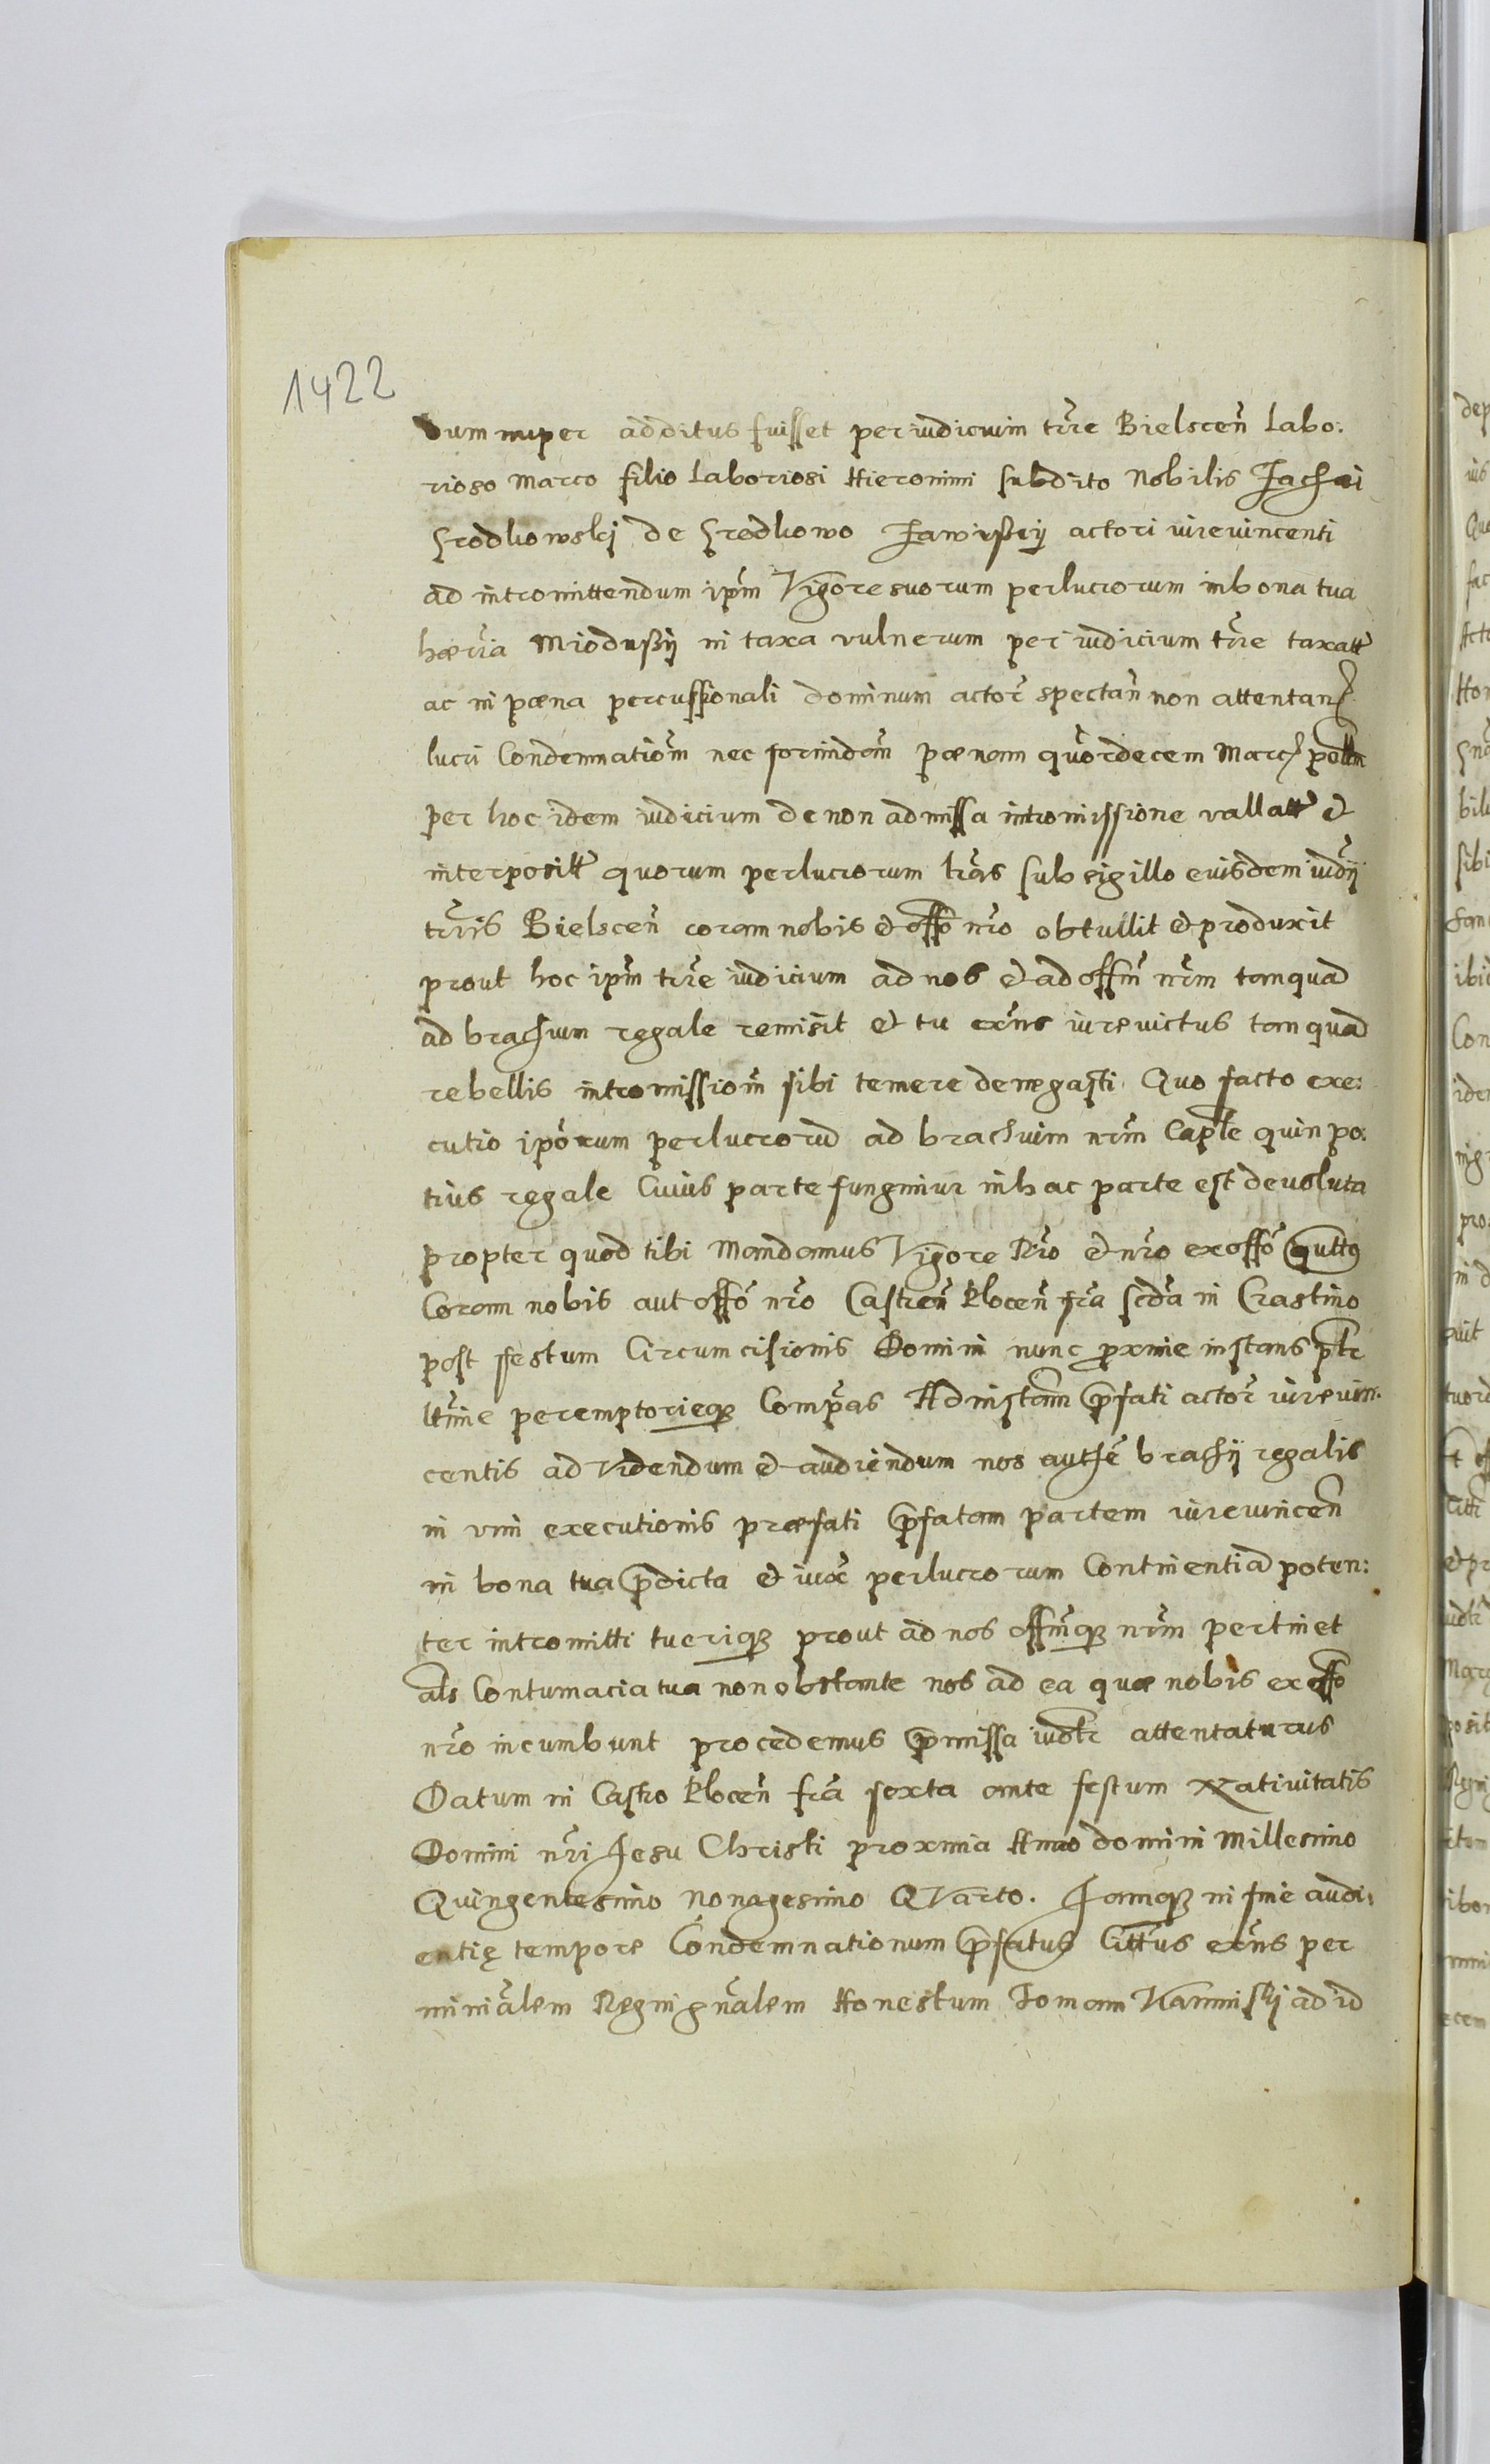 1422
dum nuper additus fuisset per iudicium trre Bielscen Labo:
rioso Marco filio Laboriosi Hieronimi subdito Nobilis Zachai
Srodkowskj de Srodkowo Zawissij actori iurevincenti
ad intromittendum ipm Vigore suorum perlucrorum in bona tua
haeria Miodussij in taxa vulnerum per iudicium trre taxatt
ac in paena percussionali dominum actor spectan non attentan
lucri Condemnationm nec formidam paenam quordecem Marc
per hoc idem iudicium de non admissa intromissione vallatt et
interpositt quorum perlucrorum tras sub sigillo eiusdem iudij
trris Bielscen coram nobis et offo nro obtullit et produxit
prout hoc ipm trre iudicium ad nos et ad offm nrm tanquad
ad brachium regale remisit et tu exns iurevictus tanquad
rebellis intromissionm sibi temere denegasti. Quo facto exe:
cutio iporum perlucroru ad brachium nrm Captle quin po:
tius regale Cuius parte fungimur in hac parte est devoluta
propter quod tibi Mandamus Vigore Rro et nro ex offo quttg
Coram nobis aut offo nro Castren Plocen fra scda in Crastino
post festum Circumcisionis Domini nunc proxime instans ptr
ltime peremptorieq Compas Ad instam pfati actor iurevin:
centis ad Videndum et audiendum nos authe brachij regalis
in vim executionis praefati pfatam partem iurevincen
in bona tua pdicta et iux perlucrorum Continentia poten:
ter intromitti tueriq prout ad nos offmq nrm pertinet
als Contumacia tua non obstante nos ad ea quae nobis ex offo
nro incumbunt procedemus pmissa iudtr attentaturus
Datum in Castro Plocen fra sexta ante festum Nativitatis
Domini nri Jesu Christi proxima Anno domini Millesimo
Quingentesimo Nonagesimo QVarto. Jamq in fine audi:
entię tempore Condemnationum pfatus Cittus exns per
minialem Regni gnalem Honestum Tomam Kaminskj ad id